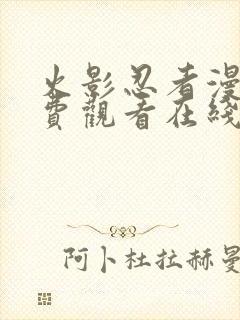 火影忍者漫
費觀看在綫
阿卜杜拉赫曼